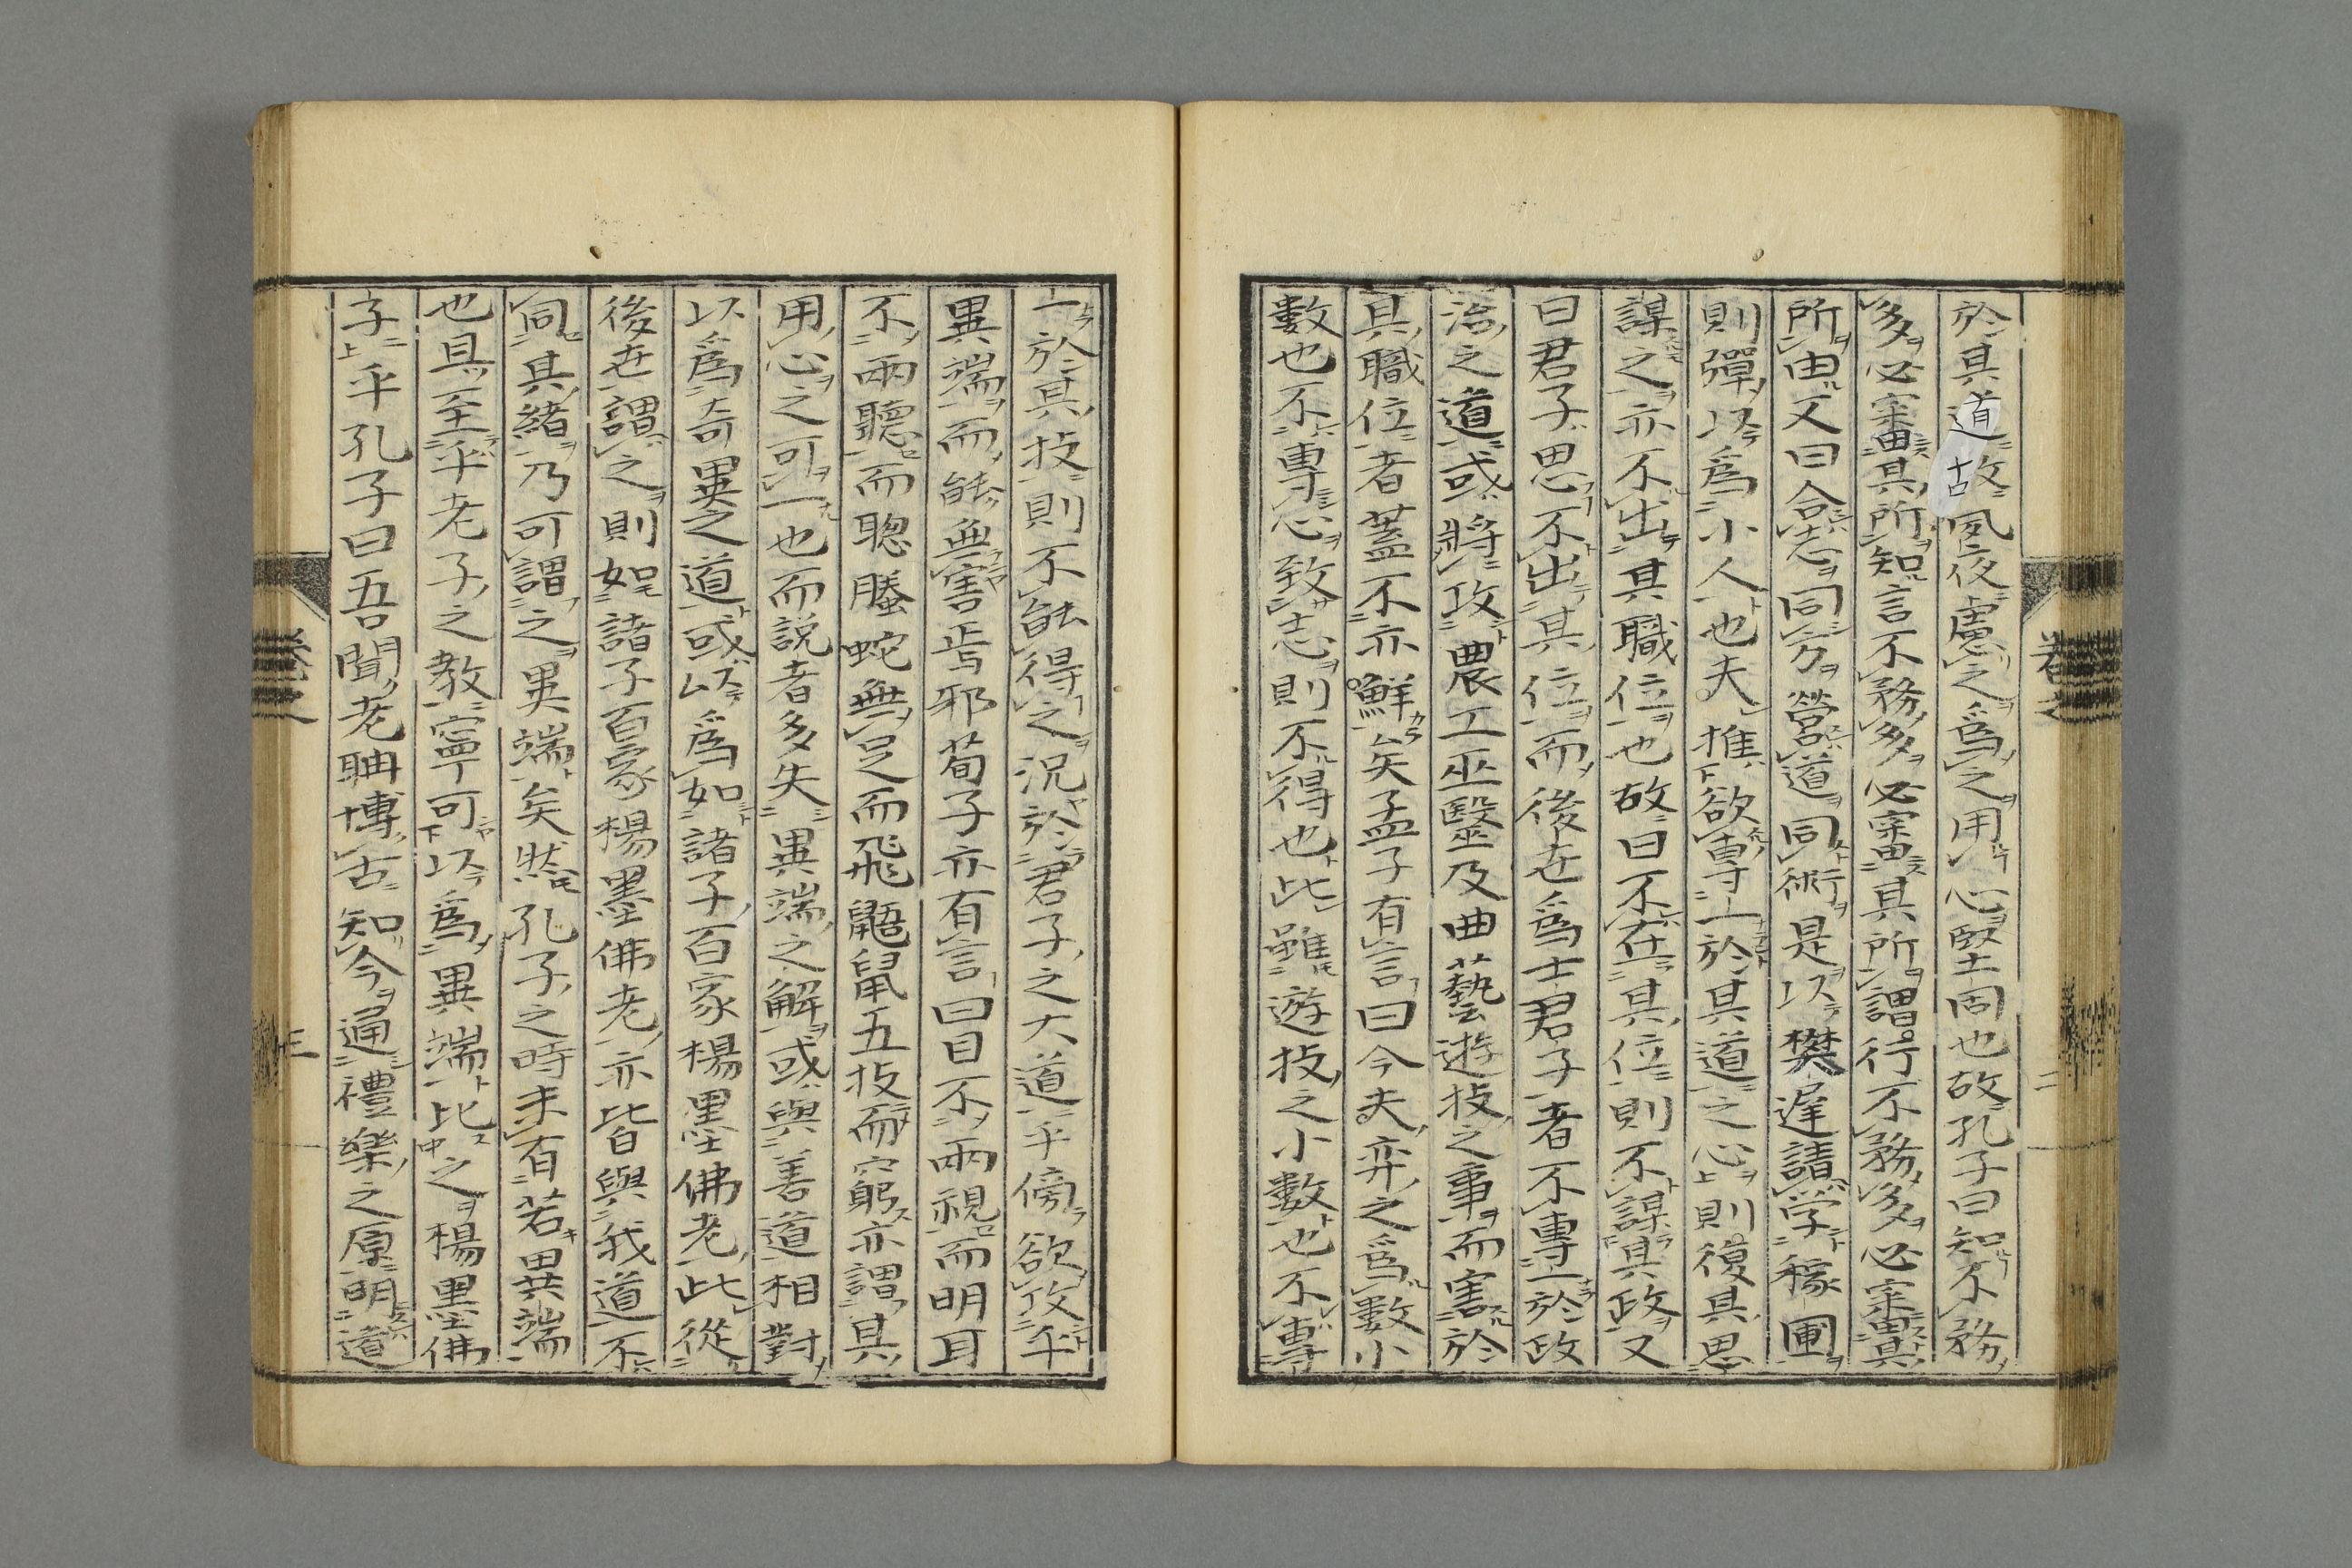 於其道故夙夜慮之爲之用心堅固也故孔子曰知不務
多必審其所知言不務多必審其所謂行不務多必審其
所由又曰合志同方營道同術是以樊遲請学稼圃
則彈以爲小人也夫推欲專一於其道之心則復其思
謀之亦不出其職位也故曰不在其位則不謀其政又
曰君子思不出其位而後世爲士君子者不專一於政
治之道或將攻農工巫醫及曲藝遊技之事而害於
其職位者蓋不亦鮮矣孟子有言曰今夫弈之爲數小
數也不專心致志則不得也此雖遊技之小數也不專
一於其技則不能得之況於君子之大道乎傍欲攻乎
異端而能無害焉邪荀子亦有言曰目不兩視而明耳
不兩聽而聰螣蛇無足而飛鼯鼠五技而窮亦謂其
用心之可一也而説者多失異端之解或與善道相對
以爲奇異之道或以爲如諸子百家楊墨佛老此從
後世謂之則如諸子百家楊墨佛老亦皆與我道不
同其緒乃可謂之異端矣然孔子之時未有若異端
也其至乎老子之教寧可以爲異端比之楊墨佛
子乎孔子曰吾聞老聃博古知今通禮樂之原明道
卷之
二
卷之
三